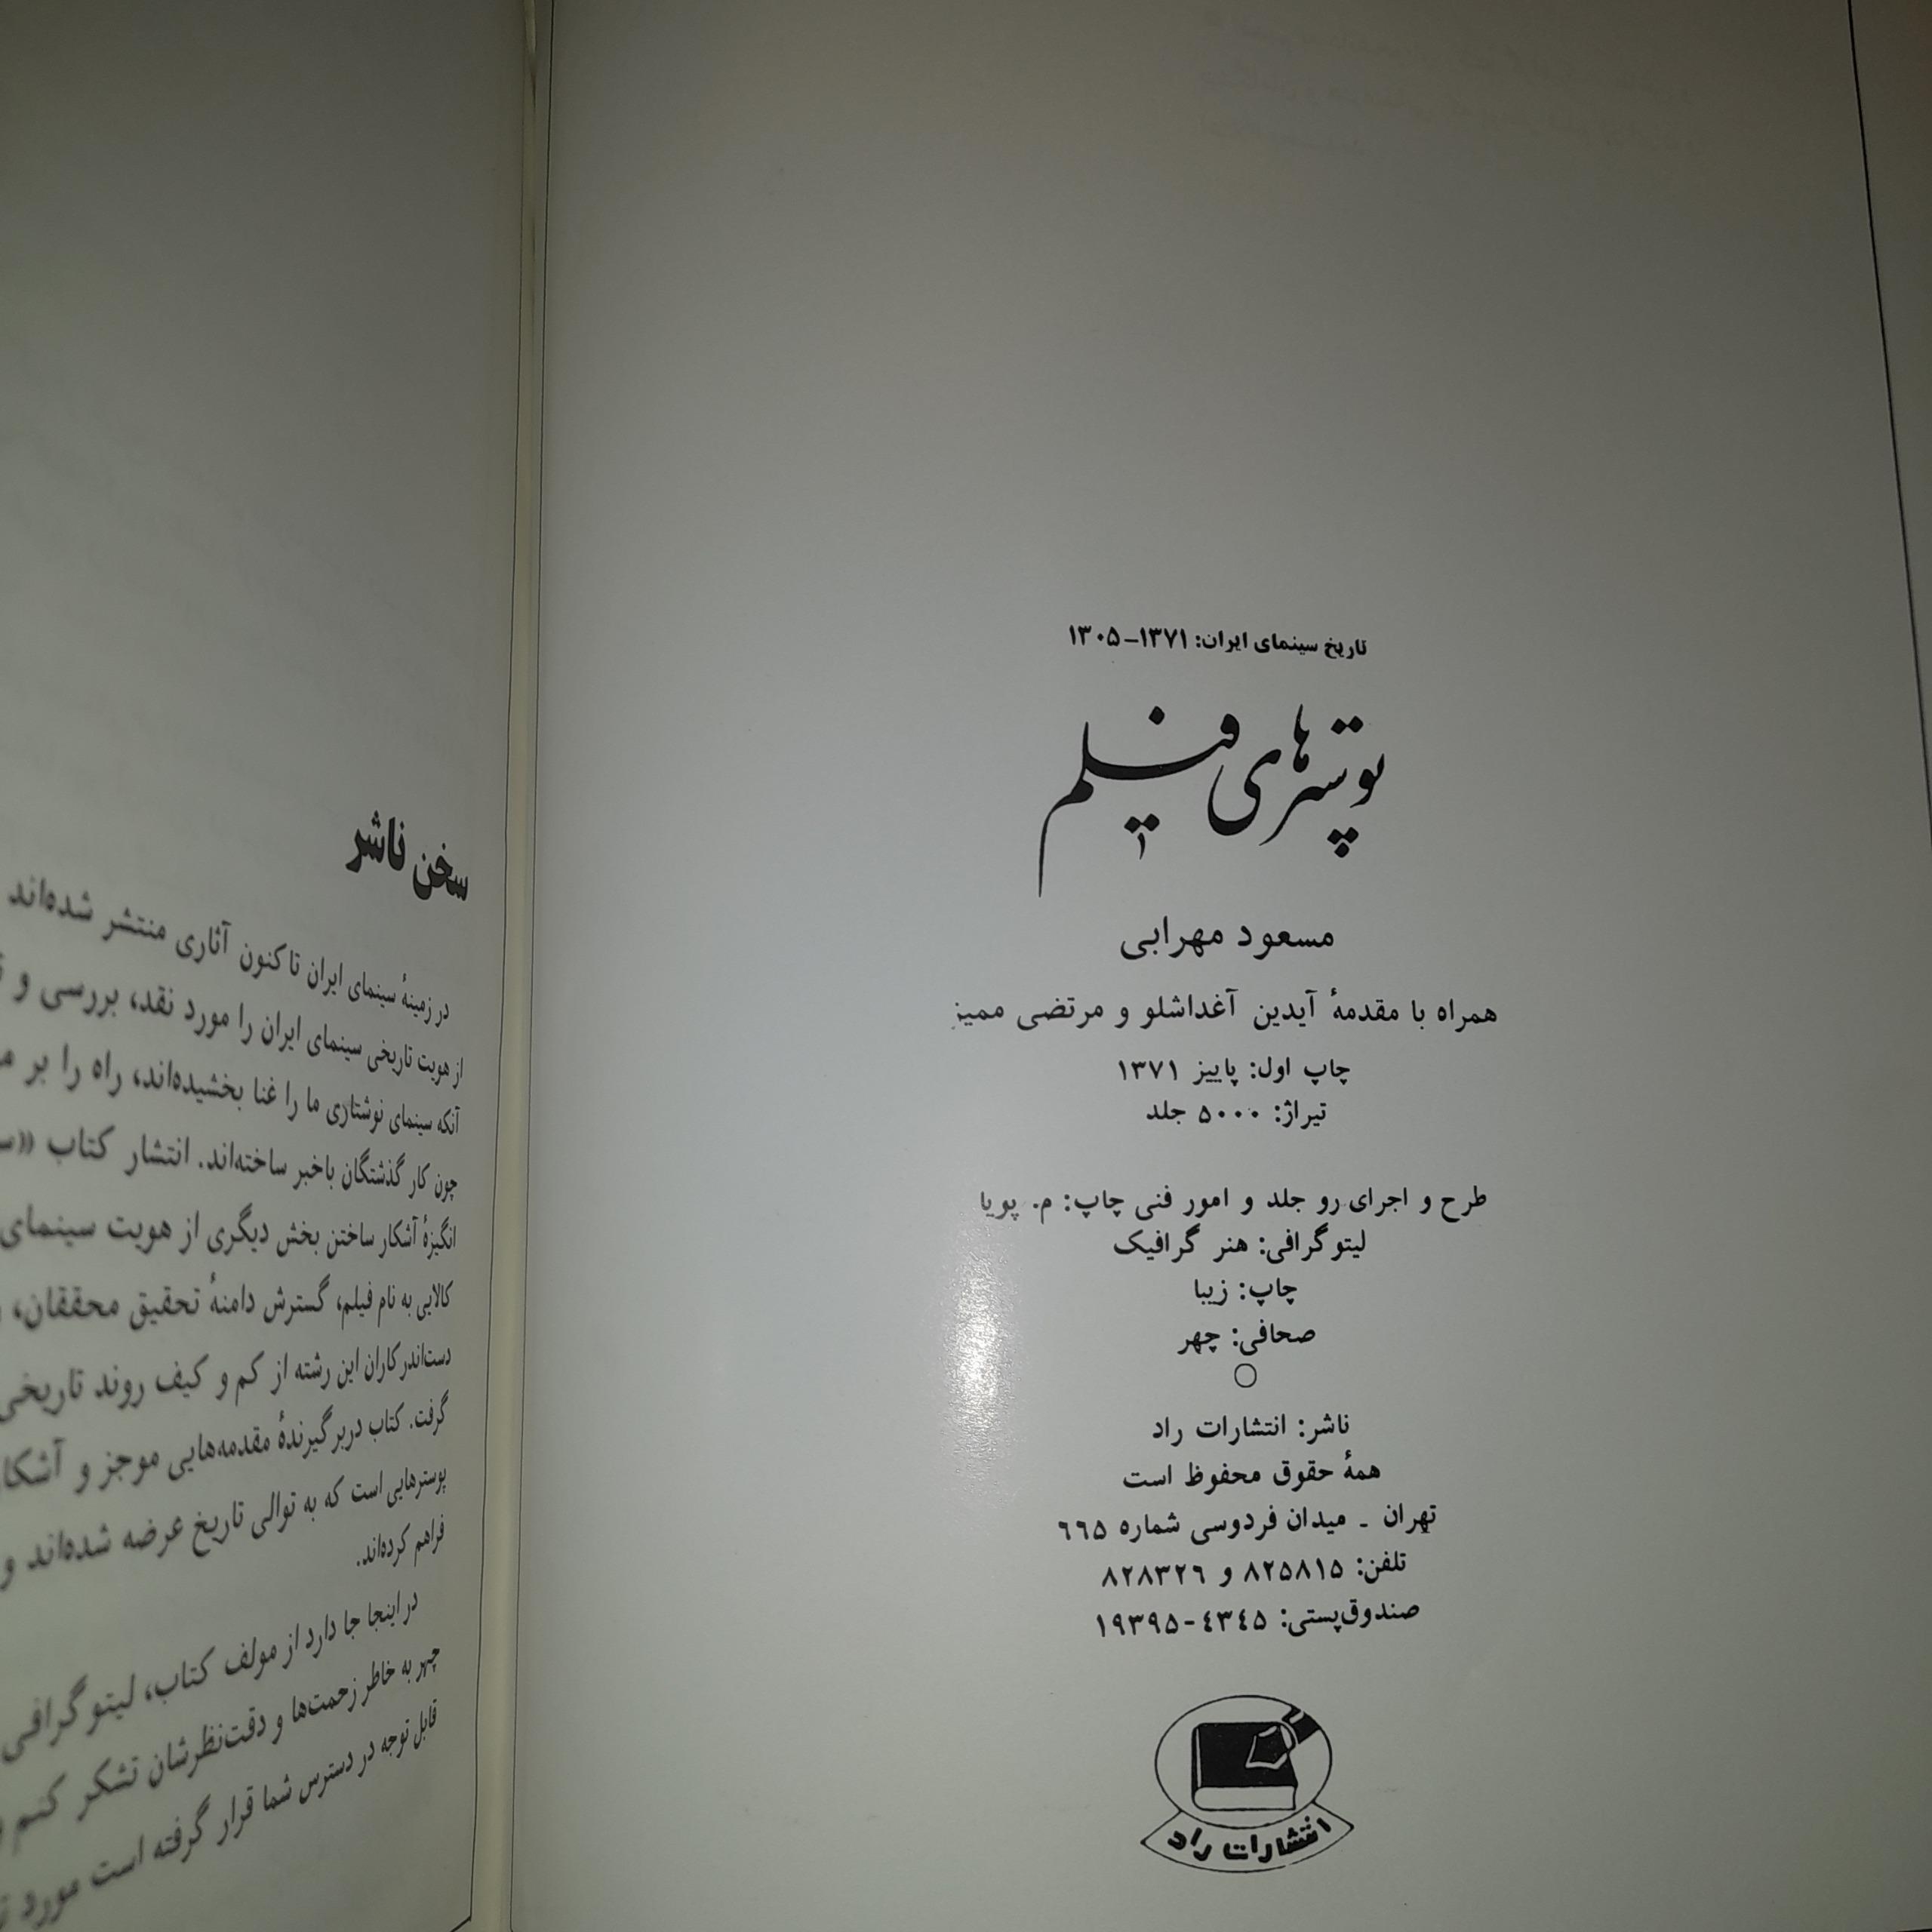 تاریخ سینمای ایران: ۱۳۷۱-۱۳۰۵
پوسترهای فیلم
۱
مسعود مهرابی
همراه با مقدمهٔ آیدین آغداشلو و مرتضی ممیز
چاپ اول: پاییز ۱۳۷۱
تیراژ: ۵۰۰۰ جلد
طرح و اجرای رو جلد و امور فنی چاپ: م. پویا
لیتوگرافی: هنر گرافیک
چاپ: زیبا
صحافی: چهر
ناشر: انتشارات راد
همهٔ حقوق محفوظ است
تهران ـ میدان فردوسی شماره ۶۶۵
تلفن: ۸۲۵۸۱۵ و ۸۲۸۳۲۶
صندوق‌پستی: ۴۳۴۵-۱۹۳۹۵
انتشارات راد
سخن ناشر
در زمینهٔ سینمای ایران تاکنون آثاری منتشر شده‌اند
از هویت تاریخی سینمای ایران را مورد نقد، بررسی و
آنکه سینمای نوشتاری ما را غنا بخشیده‌اند، راه را بر
چون کار گذشتگان باخبر ساخته‌اند. انتشار کتاب
انگیزهٔ آشکار ساختن بخش دیگری از هویت سینمای
کالایی به نام فیلم، گسترش دامنهٔ تحقیق محققان،
دست‌اندرکاران این رشته از کم و کیف روند تاریخی
گرفت. کتاب دربرگیرندهٔ مقدمه‌هایی موجز و
پوسترهایی است که به توالی تاریخ عرضه شده‌اند و
فراهم کرده‌اند.
در اینجا جا دارد از مولف کتاب، لیتوگرافی
چهر به خاطر زحمت‌ها و دقت‌نظرشان تشکر کنم
قابل توجه در دسترس شما قرار گرفته است مورد